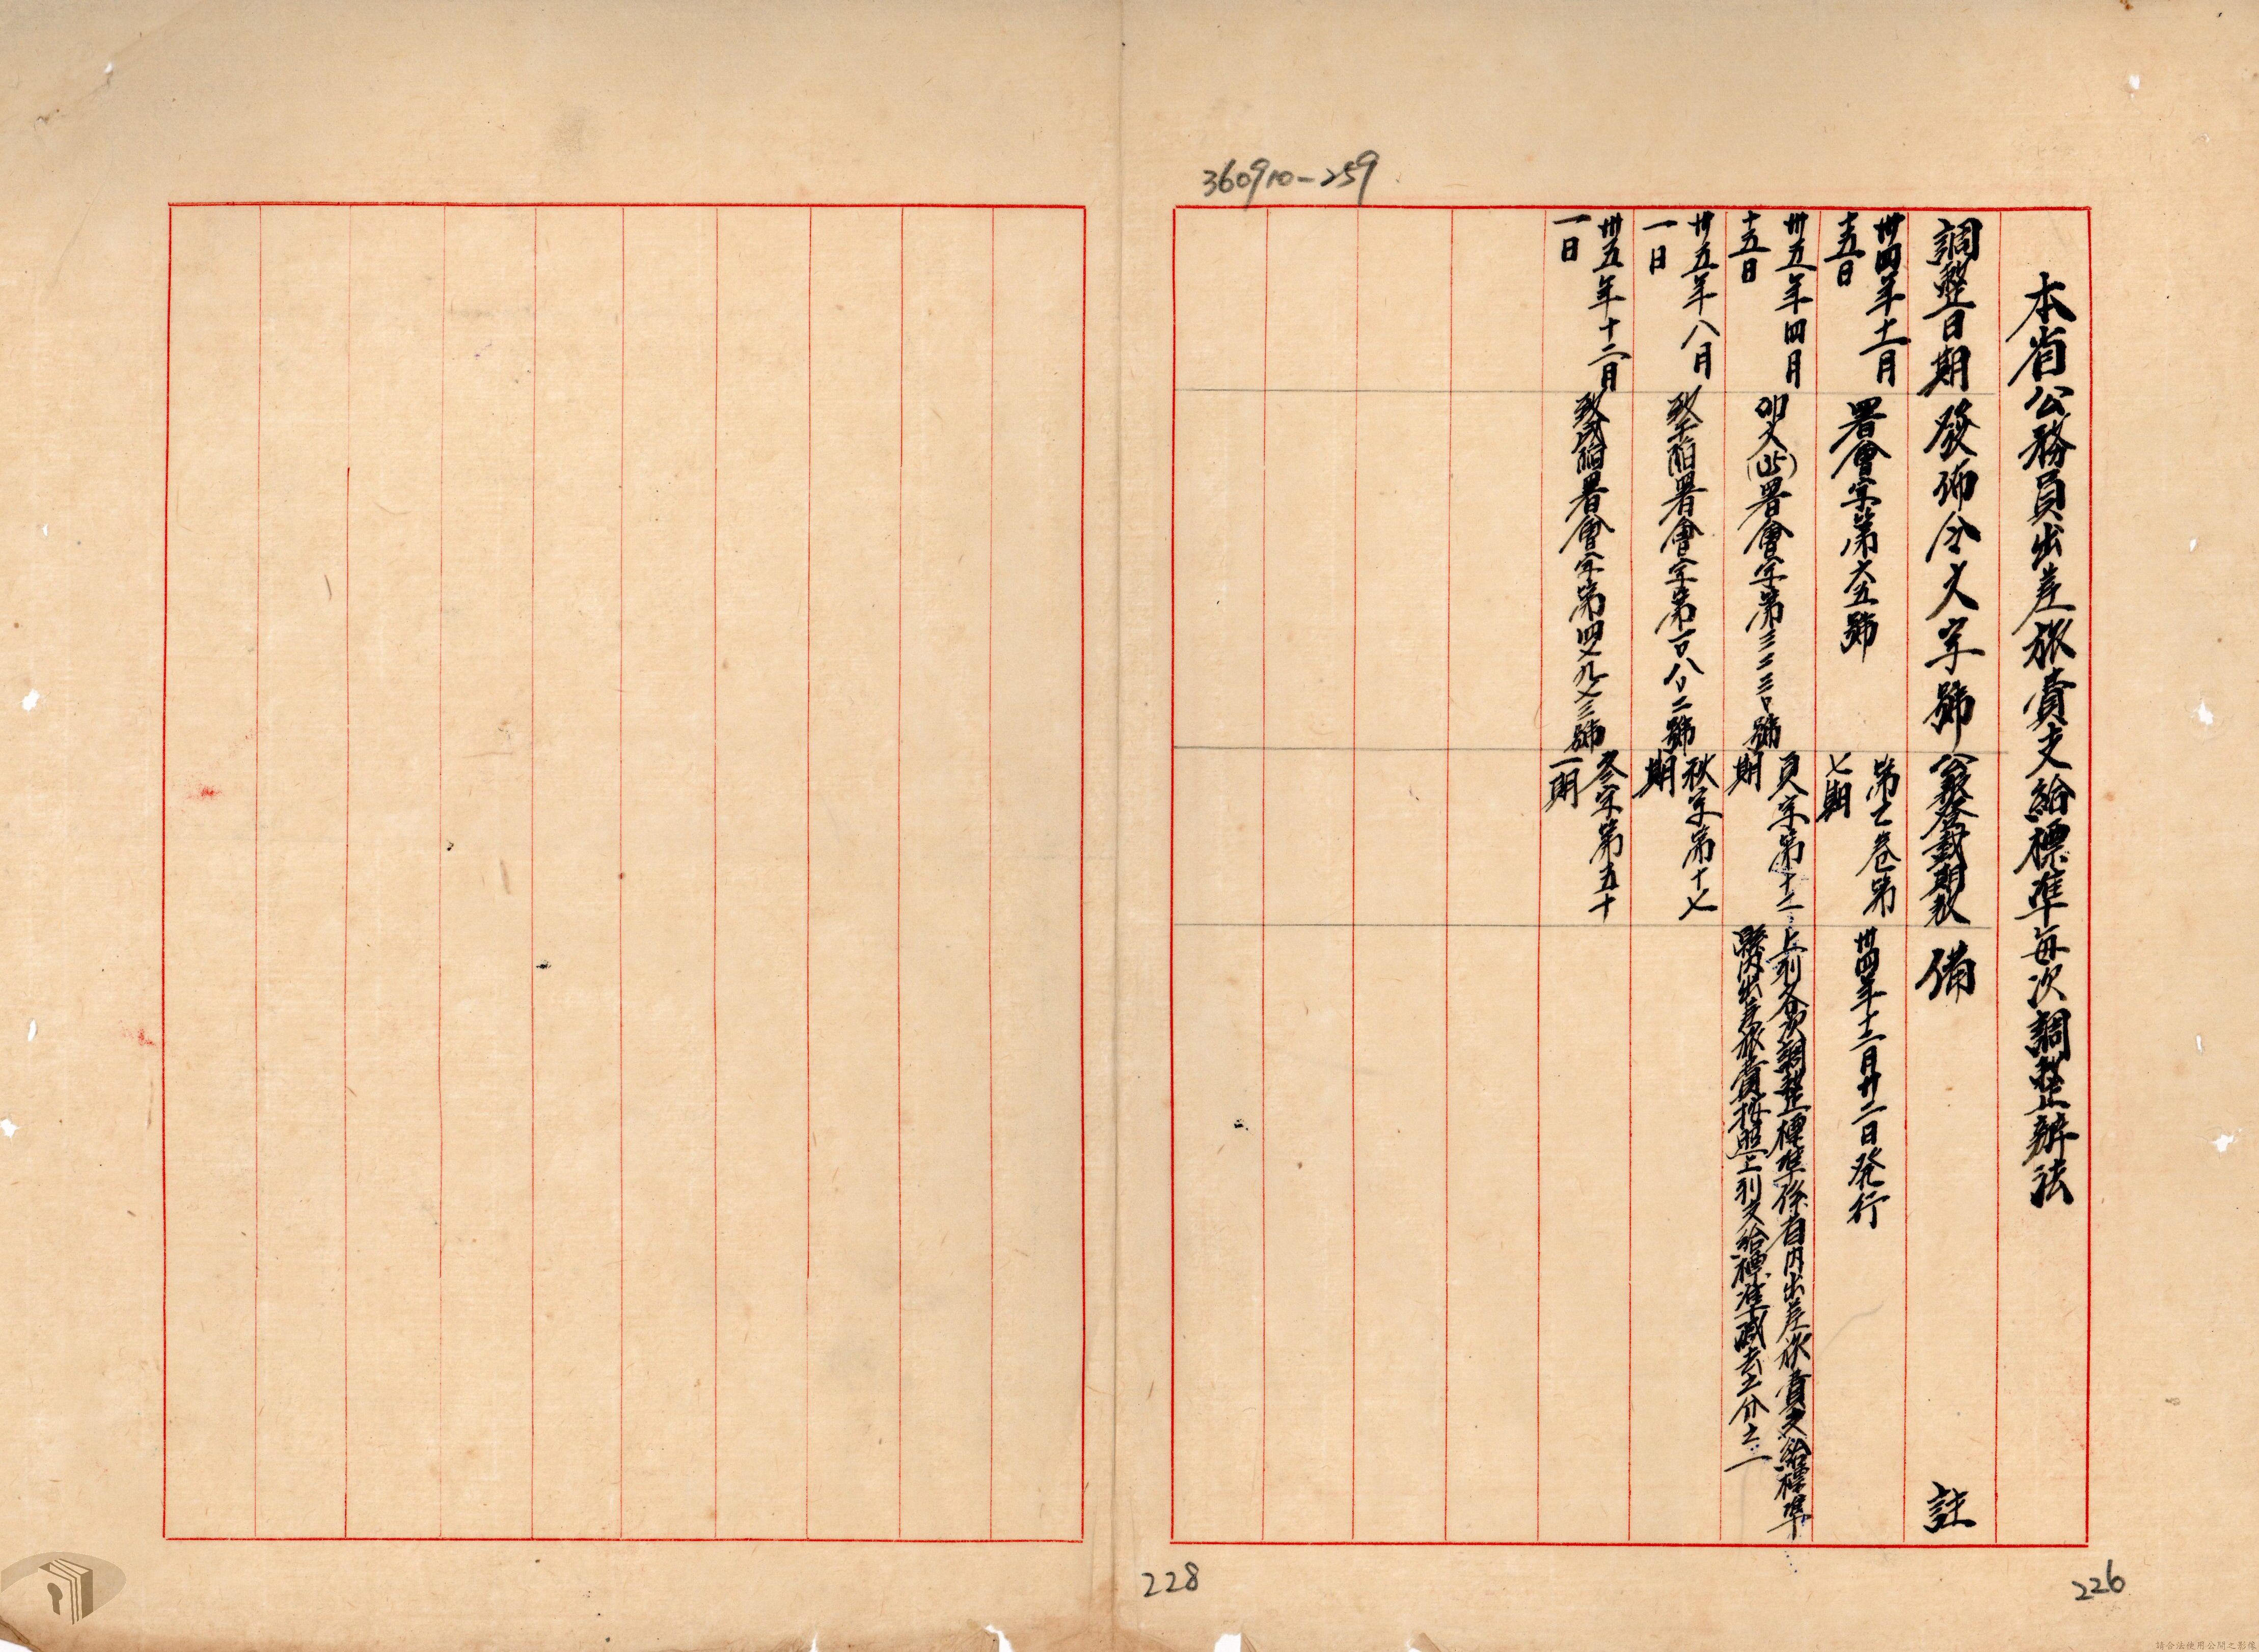 360910-259
本省公務員出差旅費支給標準每次調整辦法
調整日期 發佈令文字號 公報登載期數 備 註
卅四年十二月
十五日
署會字第六五號
第七期
卅四年十二月廿二日発行
卅五年四月
十五日
卯火(35)署會字第三二三〇號
夏字第十二
期
上列各次調整標準係省内出差旅費支給標準
縣内出差旅費按照上列支給標準減去三分之一
卅五年八月
一日
署會字第
秋字第十七
期
卅五年十二月
一日
署會字第四七九七三號
冬字第五十
一期
226
228
請合法使用公開之影像